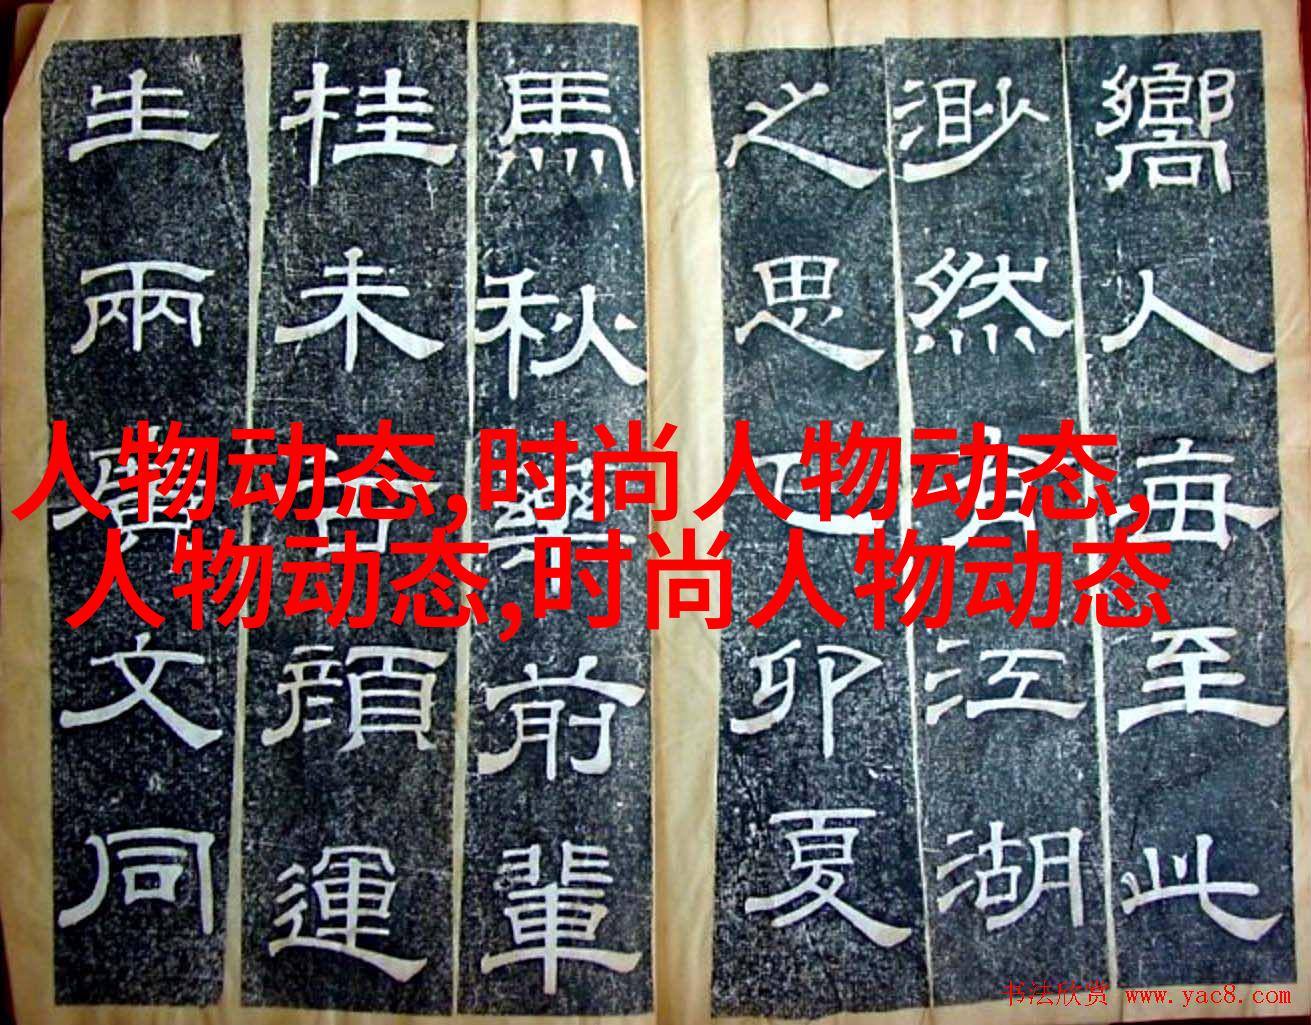 嚮人每至此
渺然有江湖
之思己卯夏
馬秋藥前輩
桂未谷顔運
生兩廣文同
人物动态,时尚人物动态,
人物动态,时尚人物动态
书法欣赏 www.yac8.com